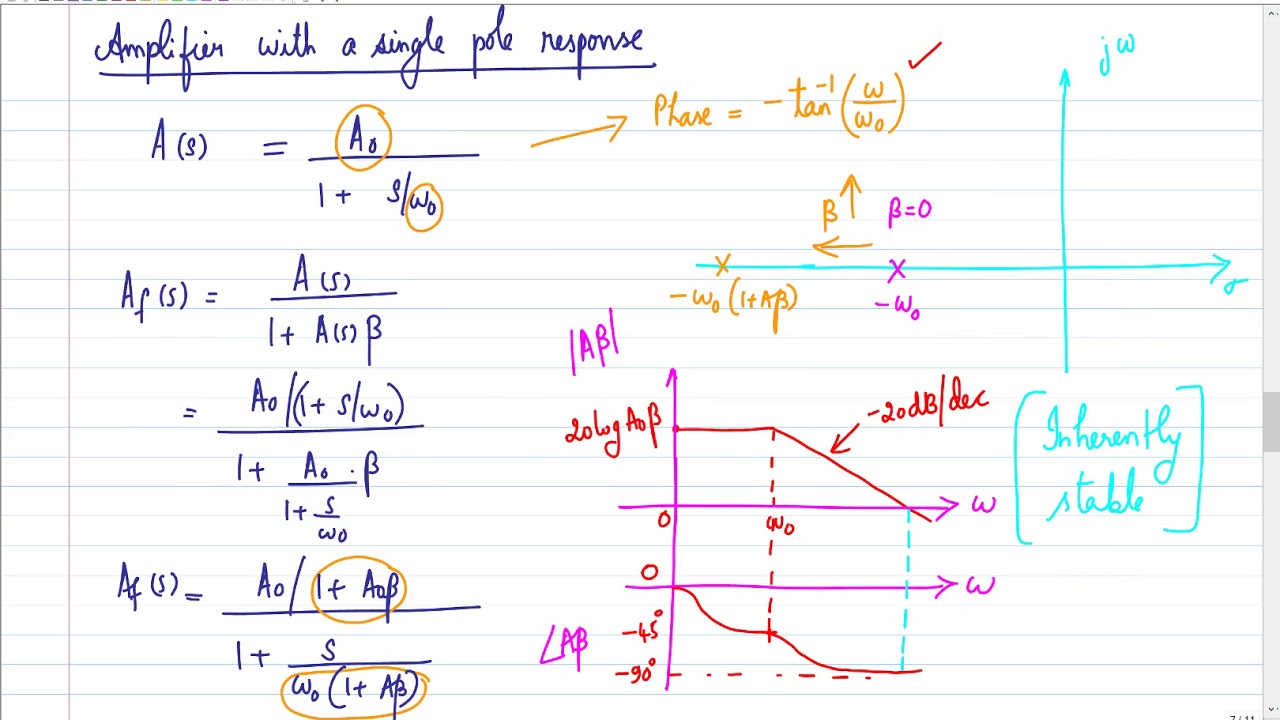 Amplifier with a single pole response
A(s) = A₀ / (1 + s/ω₀)
Phase = -tan⁻¹(ω/ω₀) ✓
jω
σ
β ↑
β=0
-ω₀(1+Aβ)
-ω₀
Af(s) = A(s) / (1 + A(s)β)
= A₀/(1+s/ω₀) / (1 + A₀/(1+s/ω₀) · β)
Af(s) = A₀/(1+A₀β) / (1 + s/(ω₀(1+Aβ)))
|Aβ|
20log A₀β
-20dB/dec
0
ω₀
ω
0
ω
-45°
∠Aβ
-90°
[Inherently
stable]
7 / 11